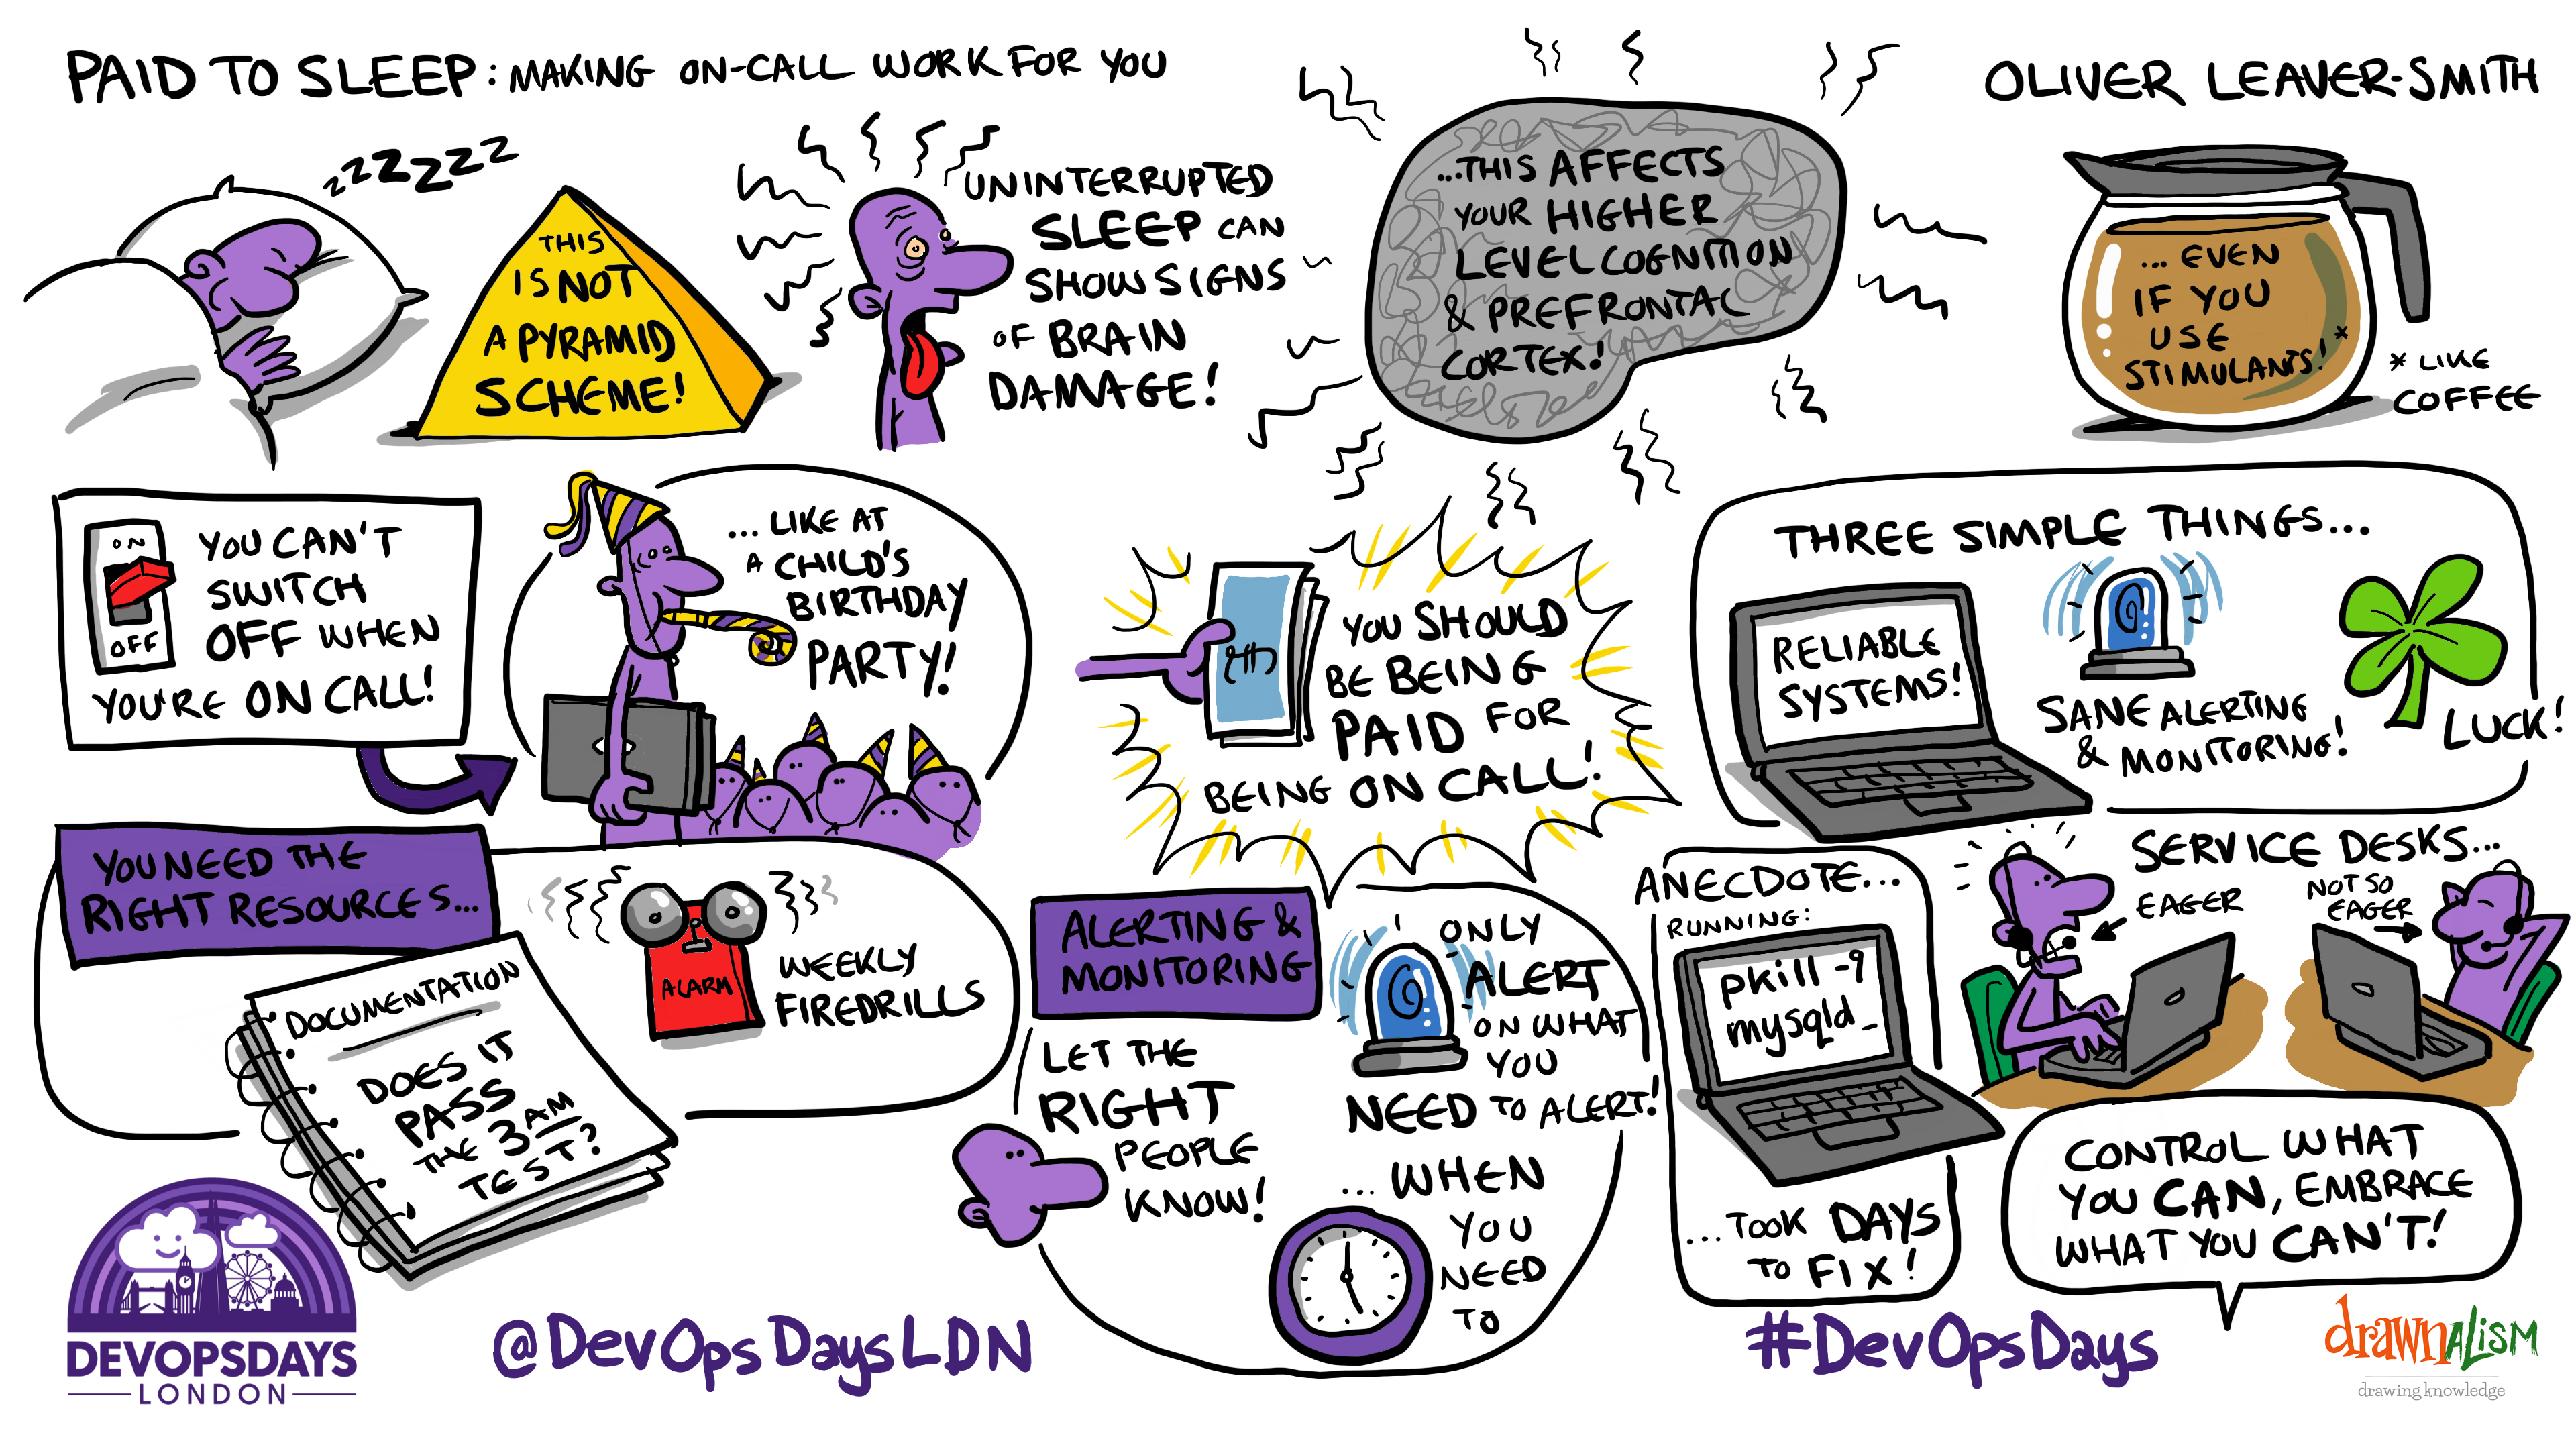 PAID TO SLEEP: MAKING ON-CALL WORK FOR YOU
OLIVER LEAVER-SMITH
zzZZZZ
THIS
IS NOT
A PYRAMID
SCHEME!
UNINTERRUPTED
SLEEP CAN
SHOW SIGNS
OF BRAIN
DAMAGE!
...THIS AFFECTS
YOUR HIGHER
LEVEL COGNITION
& PREFRONTAL
CORTEX!
... EVEN
IF YOU
USE
STIMULANTS!*
* LIKE
COFFEE
ON
OFF
YOU CAN'T
SWITCH
OFF WHEN
YOU'RE ON CALL!
... LIKE AT
A CHILD'S
BIRTHDAY
PARTY!
YOU SHOULD
BE BEING
PAID FOR
BEING ON CALL!
THREE SIMPLE THINGS...
RELIABLE
SYSTEMS!
SANE ALERTING
& MONITORING!
LUCK!
YOU NEED THE
RIGHT RESOURCES...
DOCUMENTATION
DOES IT
PASS
THE 3AM
TEST?
ALARM
WEEKLY
FIREDRILLS
ALERTING &
MONITORING
LET THE
RIGHT
PEOPLE
KNOW!
ONLY
ALERT
ON WHAT
YOU
NEED TO ALERT!
... WHEN
YOU
NEED
TO
ANECDOTE...
RUNNING:
pkill -9
mysqld_
...TOOK DAYS
TO FIX!
SERVICE DESKS...
EAGER
NOT SO
EAGER
CONTROL WHAT
YOU CAN, EMBRACE
WHAT YOU CAN'T!
DEVOPSDAYS
LONDON
@DevOpsDaysLDN
#DevOpsDays
drawnalism
drawing knowledge